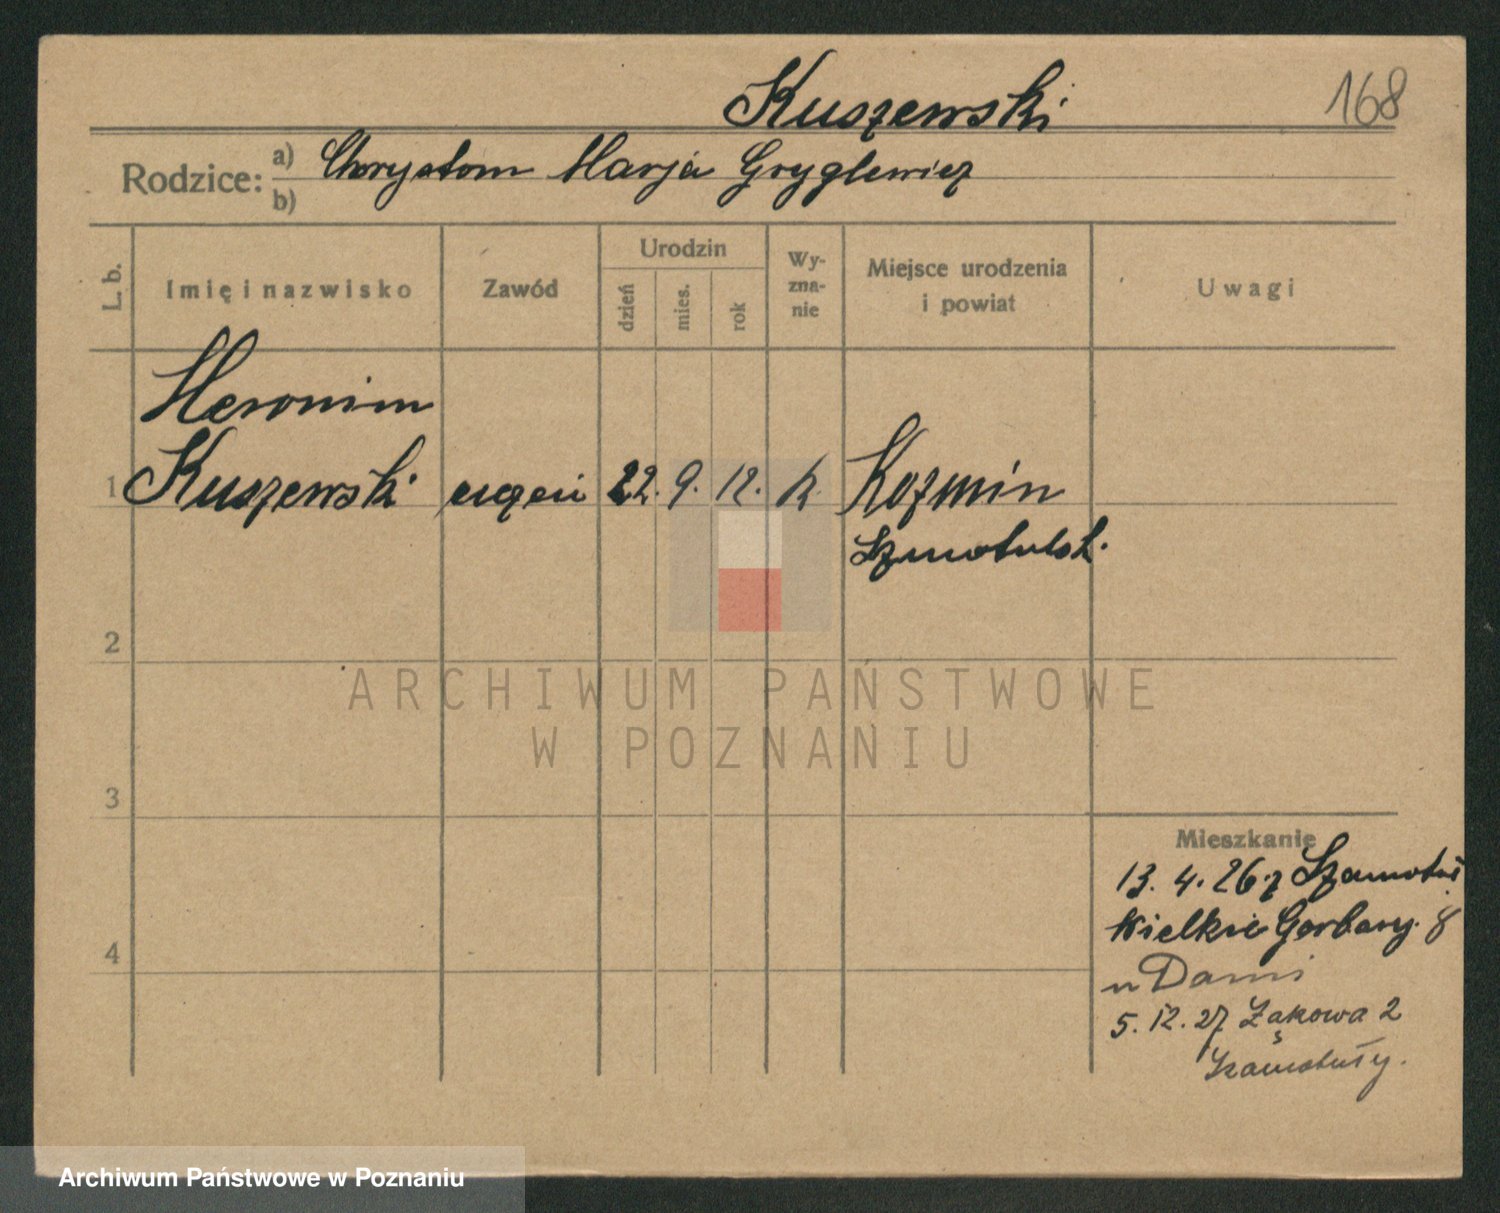 Kuszewski
168
Rodzice: a) Chrystom Marja Gryglewicz
b)
L. b.
Imię i nazwisko
Zawód
Urodzin
dzień
mies.
rok
Wy-
zna-
nie
Miejsce urodzenia
i powiat
Uwagi
Heronim
1 Kuszewski uczeń 22. 9. 12. k. Kozmin
Szmotulsk.
2
3
4
Mieszkanie
13. 4. 26. z Szamotuł
Wielkie Garbary. 8
u Dami
5. 12. 27 Łąkowa 2
Szamotuły.
ARCHIWUM PAŃSTWOWE
W POZNANIU
Archiwum Państwowe w Poznaniu